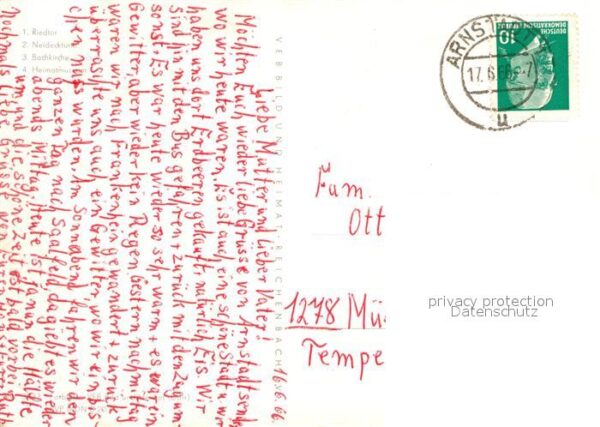 1. Riedtor
2. Neideckturm
3. Bachkirche
4. Heimatmuseum
VERB BILD UND HEIMAT REICHENBACH
16.6.66.
Liebe Mutter und lieber Vater!
Möchten Euch wieder liebe Grüsse von Arnstadt senden
wo wir heute waren. Es ist auch eine schöne Stadt u. wir
haben uns dort Erdbeeren gekauft, natürlich Eis. Wir
sind hin mit den Bus gefahren + zurück mit den Zug um
sonst. Es war heute wieder so sehr warm + es war ein
Gewitter, aber wieder kein Regen. Gestern nachmittag
waren wir nach Frankenhain gewandert + zurück
überraschte uns auch ein Gewitter, wo wir ein bis-
chen nass wurden. Am Sonnabend fahren wir
den ganzen Tag nach Saalfeld, da gibt es wieder
abends Mittag. Heute ist ja nun die Hälfte
um und die schöne Zeit ist bald vorbei.
Nochmals liebe Grüsse
DEUTSCHE
DEMOKRATISCHE REPUBLIK
10
ARNSTADT
17.6.66
u
Fam.
Ott
1278 Mü
Tempe
privacy protection
Datenschutz